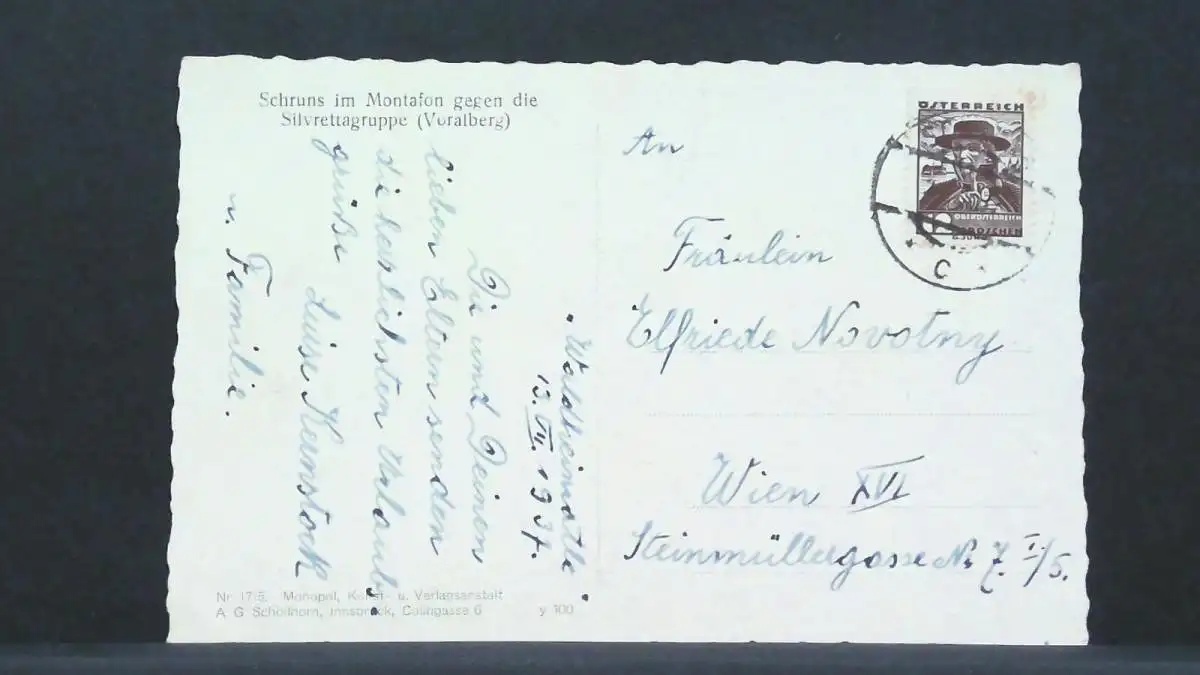 Schruns im Montafon gegen die
Silvrettagruppe (Voralberg)
"Waldheimatle"
13. VII. 1937.
Dir und Deinen
lieben Eltern senden
die herzlichsten Urlaubs
grüße Luise Kernstock
u. Familie.
Nr. 1715. Monopol, Kunst- u. Verlagsanstalt
A. G. Schöllhorn, Innsbruck, Colingasse 6 y 100
ÖSTERREICH
OBERÖSTERREICH
GROSCHEN
C
An
Fräulein
Elfriede Novotny
Wien XVI
Steinmüllergasse Nr. 7. I/5.